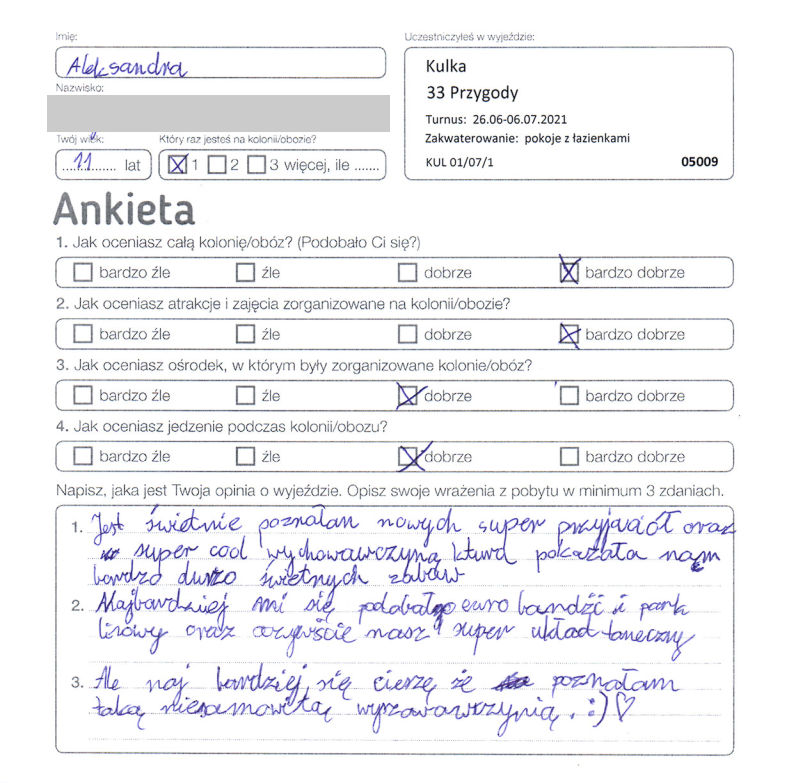 Imię:
Aleksandra
Nazwisko:
Twój wiek:
11 lat
Który raz jesteś na kolonii/obozie?
1 2 3 więcej, ile .......
Uczestniczyłeś w wyjeździe:
Kulka
33 Przygody
Turnus: 26.06-06.07.2021
Zakwaterowanie: pokoje z łazienkami
KUL 01/07/1 05009
Ankieta
1. Jak oceniasz całą kolonię/obóz? (Podobało Ci się?)
bardzo źle źle dobrze bardzo dobrze
2. Jak oceniasz atrakcje i zajęcia zorganizowane na kolonii/obozie?
bardzo źle źle dobrze bardzo dobrze
3. Jak oceniasz ośrodek, w którym były zorganizowane kolonie/obóz?
bardzo źle źle dobrze bardzo dobrze
4. Jak oceniasz jedzenie podczas kolonii/obozu?
bardzo źle źle dobrze bardzo dobrze
Napisz, jaka jest Twoja opinia o wyjeździe. Opisz swoje wrażenia z pobytu w minimum 3 zdaniach.
1. Jest świetnie poznałan nowych super przyjaciół oraz
super cool wychowawczyną która pokazała nam
bardzo dużo świetnych zabaw
2. Najbardziej mi się podobało euro bandźi i park
linowy oraz oczywiście nasz super układ taneczny
3. Ale naj bardziej się cierzę że poznałam
taką niesamowitą wyzowawrzynią. :) ♡